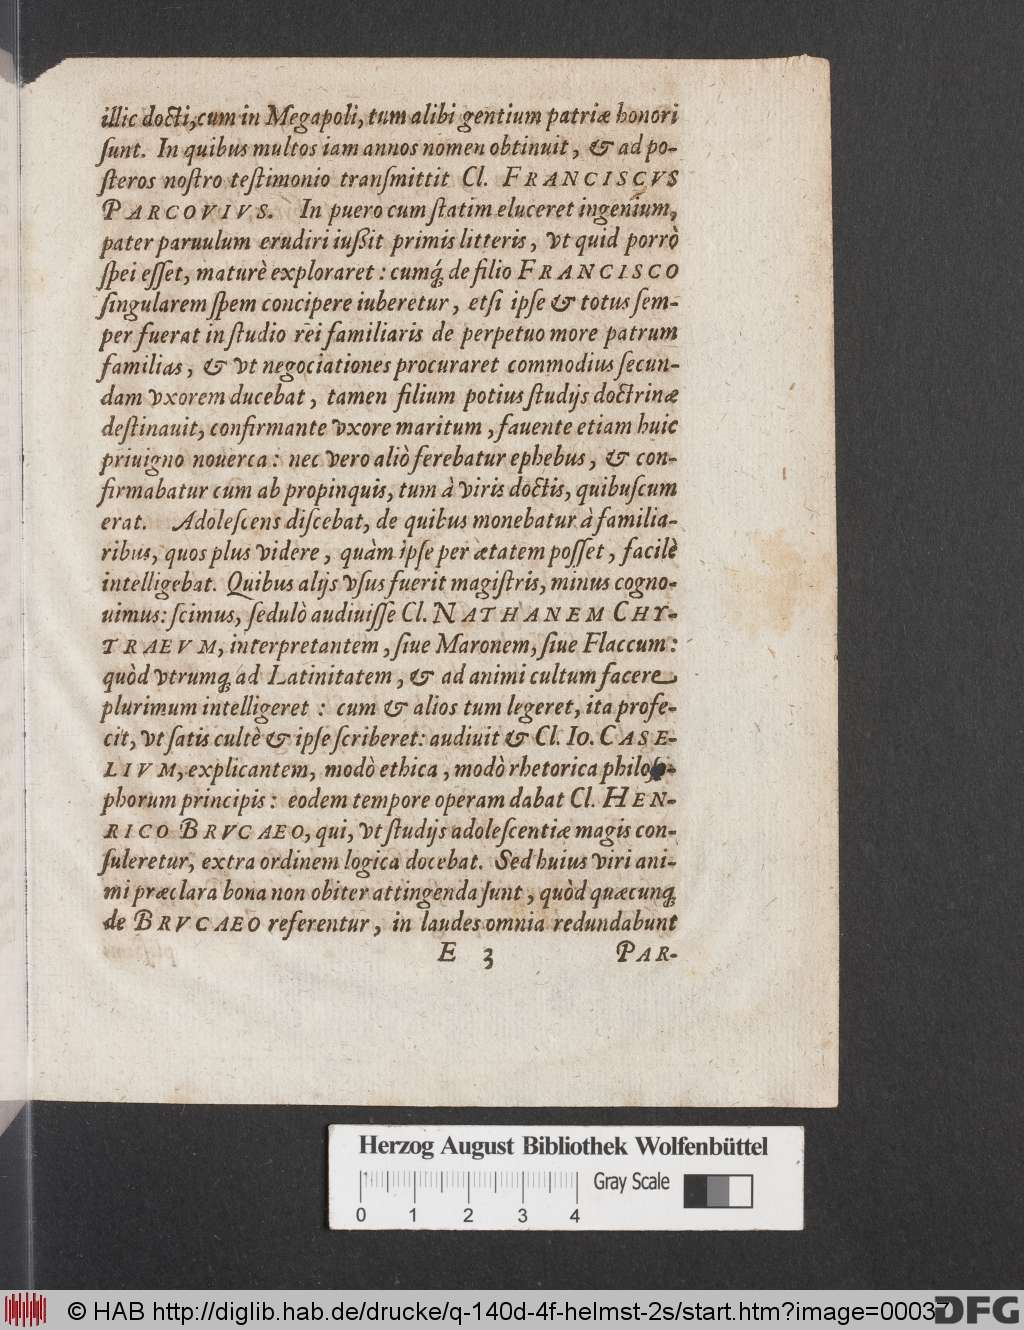 illic docti, cum in Megapoli, tum alibi gentium patriæ honori
ſunt. In quibus multos iam annos nomen obtinuit, & ad po-
ſteros noſtro teſtimonio tranſmittit Cl. FRANCISCVS
PARCOVIVS. In puero cum ſtatim eluceret ingenium,
pater paruulum erudiri iußit primis litteris, vt quid porrò
ſpei eſſet, maturè exploraret: cumq́; de filio FRANCISCO
ſingularem ſpem concipere iuberetur, etſi ipſe & totus ſem-
per fuerat in ſtudio rei familiaris de perpetuo more patrum
familias, & vt negociationes procuraret commodius ſecun-
dam vxorem ducebat, tamen filium potius ſtudijs doctrinæ
deſtinauit, confirmante vxore maritum, fauente etiam huic
priuigno nouerca: nec vero aliò ferebatur ephebus, & con-
firmabatur cum ab propinquis, tum à viris doctis, quibuſcum
erat. Adoleſcens diſcebat, de quibus monebatur à familia-
ribus, quos plus videre, quàm ipſe per ætatem poſſet, facilè
intelligebat. Quibus alijs vſus fuerit magiſtris, minus cogno-
uimus: ſcimus, ſedulò audiuiſſe Cl. NATHANEM CHY-
TRAEVM, interpretantem, ſiue Maronem, ſiue Flaccum:
quòd vtrumq; ad Latinitatem, & ad animi cultum facere
plurimum intelligeret : cum & alios tum legeret, ita profe-
cit, vt ſatis cultè & ipſe ſcriberet: audiuit & Cl. IO. CASE-
LIVM, explicantem, modò ethica, modò rhetorica philoſo-
phorum principis: eodem tempore operam dabat Cl. HEN-
RICO BRVCAEO, qui, vt ſtudijs adoleſcentiæ magis con-
ſuleretur, extra ordinem logica docebat. Sed huius viri ani-
mi præclara bona non obiter attingenda ſunt, quòd quæcunq;
de BRVCAEO referentur, in laudes omnia redundabunt
E 3 PAR-
Herzog August Bibliothek Wolfenbüttel
Gray Scale
0 1 2 3 4
© HAB http://diglib.hab.de/drucke/q-140d-4f-helmst-2s/start.htm?image=00037
DFG